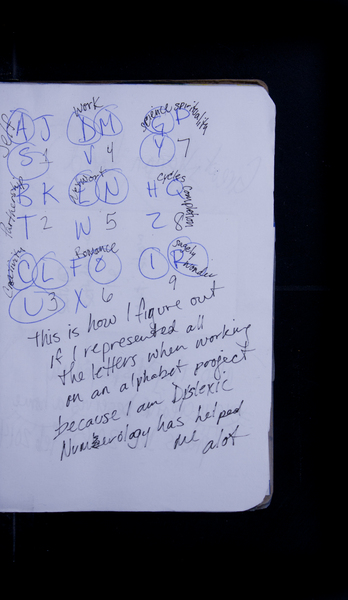 Self
Work
science spirituality
A J D M G P
S 1 V 4 Y 7
Partnership
cycles
Completion
B K E N H Q
T 2 W 5 Z 8
Creativity
Romance
C L F O I R
U 3 X 6 9
This is how I figure out
if I represented all
the letters when working
on an alphabet project
because I am Dyslexic
Numerology has helped
me alot